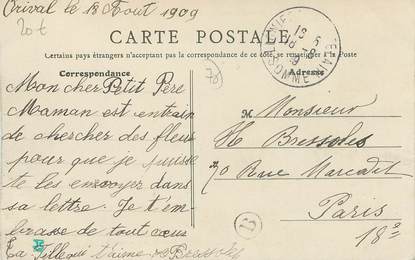 Orival le 18 Aout 1909
20 t
CARTE POSTALE
Certains pays étrangers n'acceptant pas la correspondance de ce côté, se renseigner à la Poste
Correspondance
Adresse
70
Mon cher Petit Père
Maman est entrain
de chercher des fleurs
pour que je puisse
te les envoyer dans
sa lettre. Je t'em
brasse de tout cœur
Ta filleoui t'aime
Bressoles
M Monsieur
H Bressoles
70 Rue Marcadet
Paris
18e
SOMME